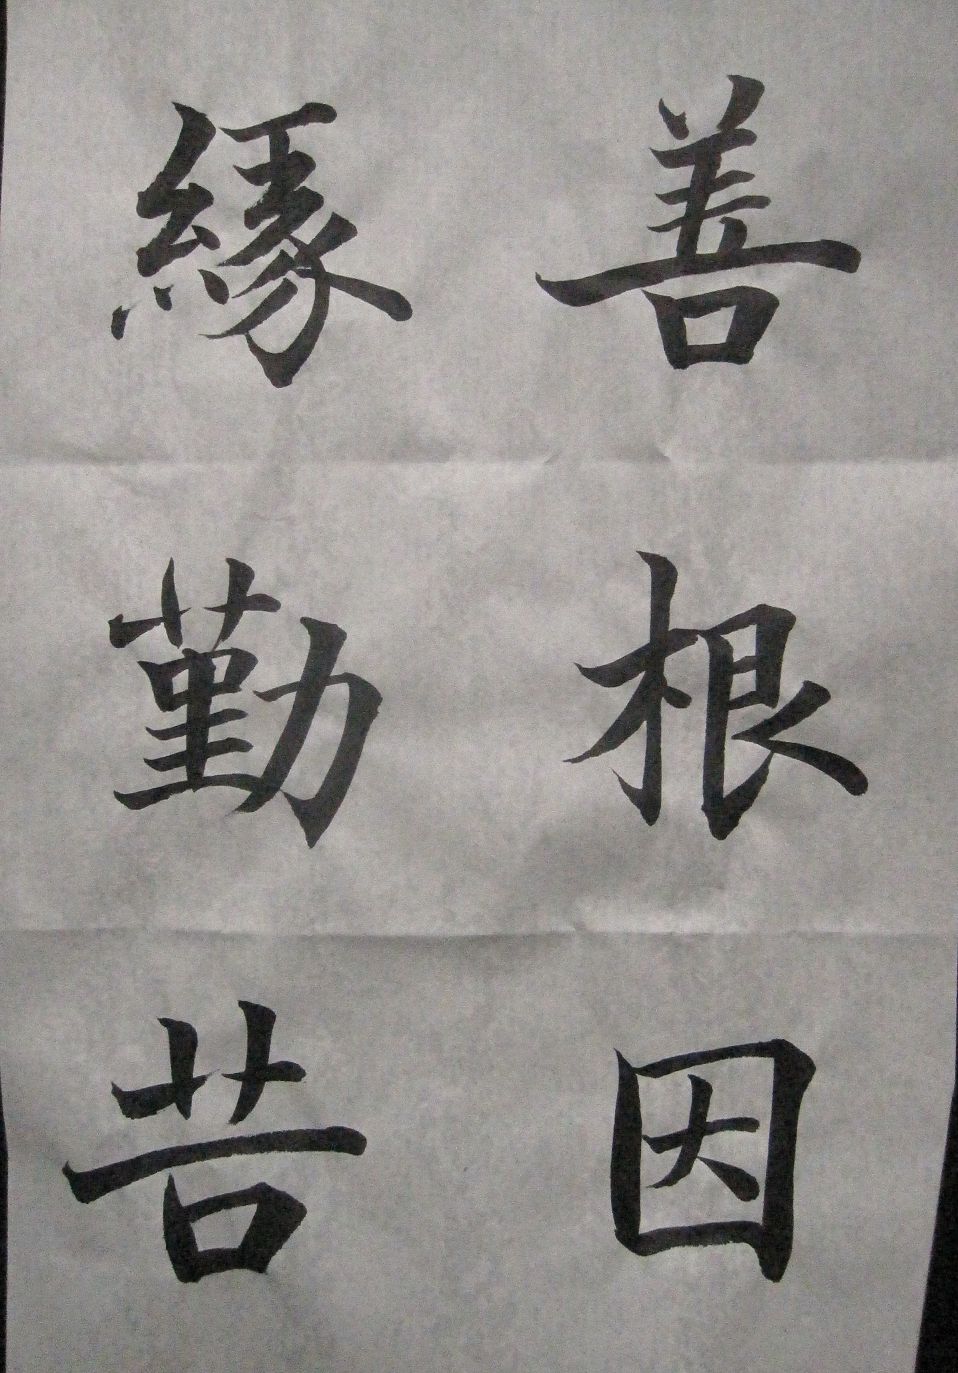 善根因
緣勤苦